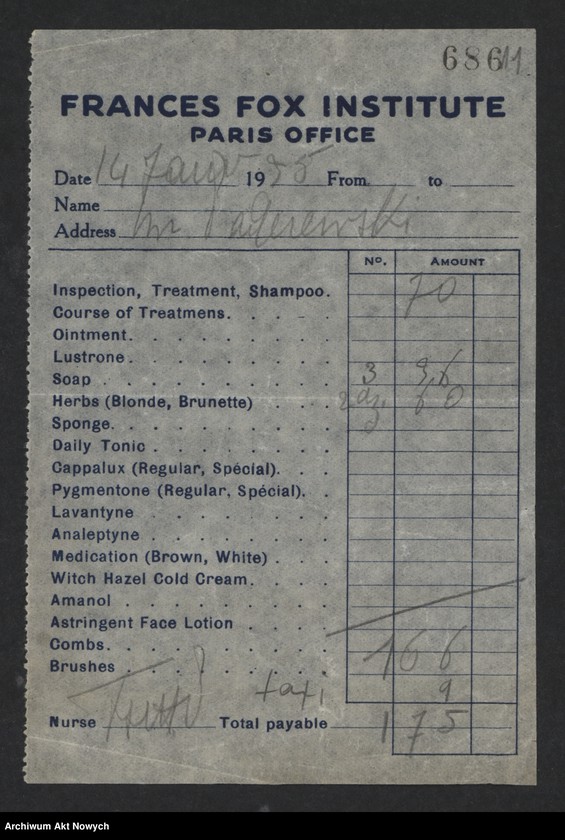 68611
FRANCES FOX INSTITUTE
PARIS OFFICE
Date 14 1935 From to
Name
Address Mr. Paderewski
No. AMOUNT
Inspection, Treatment, Shampoo. 70
Course of Treatmens.
Ointment.
Lustrone.
Soap 3 36
Herbs (Blonde, Brunette) 2 dz. 60
Sponge.
Daily Tonic
Cappalux (Regular, Spécial).
Pygmentone (Regular, Spécial).
Lavantyne
Analeptyne
Medication (Brown, White)
Witch Hazel Cold Cream.
Amanol
Astringent Face Lotion
Combs. 166
Brushes
taxi 9
Nurse Total payable 175
Archiwum Akt Nowych